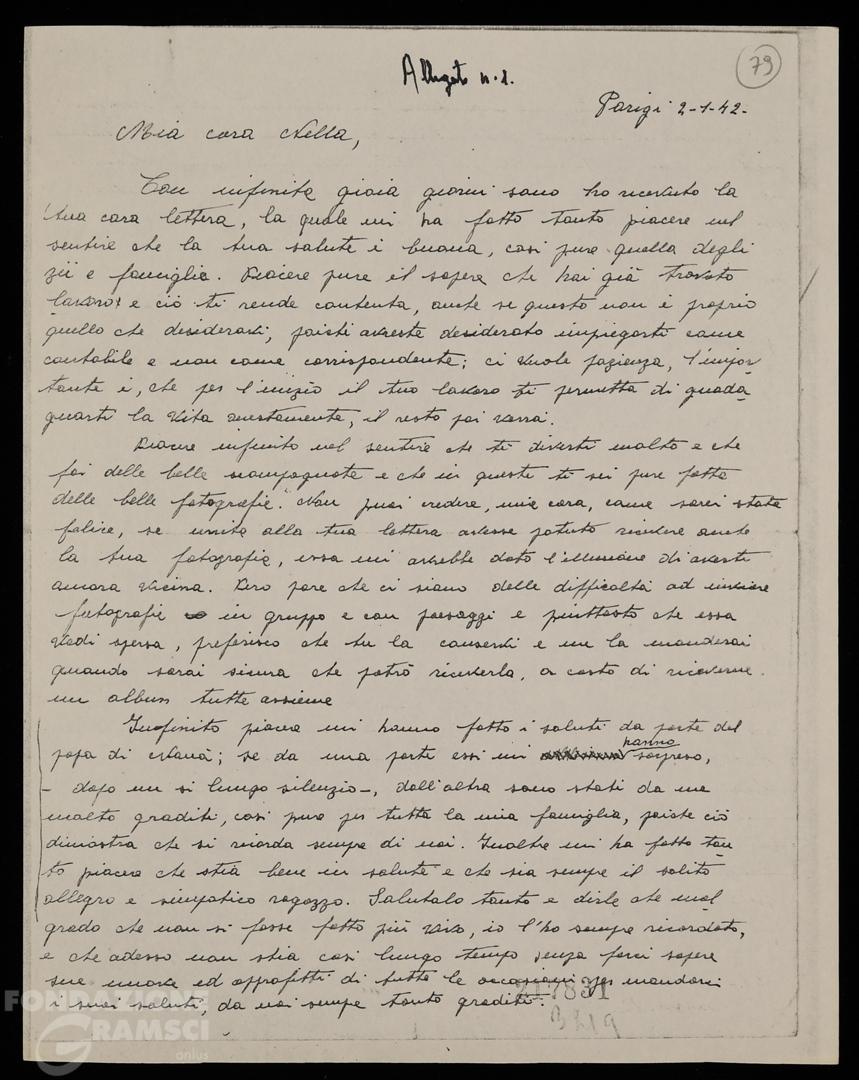 Allegato n. 1.
79
Parigi 2-1-42-
Mia cara Nella,
Con infinita gioia giorni sono ho ricevuto la
tua cara lettera, la quale mi ha fatto tanto piacere nel
sentire che la tua salute è buona, così pure quella degli
zii e famiglia. Piacere pure il sapere che hai già trovato
lavoro e ciò ti rende contenta, anche se questo non è proprio
quello che desideravi, poichè avreste desiderato impiegarti come
contabile e non come corrispondente; ci vuole pazienza, l'impor
tante è, che per l'inizio il tuo lavoro ti permetta di guada-
gnarti la vita onestamente, il resto poi verrà.
Piacere infinito nel sentire che ti diverti molto e che
fai delle belle scampagnate e che in queste ti sei pure fatta
delle belle fotografie. Non puoi credere, mia cara, come sarei stata
felice, se unita alla tua lettera avesse potuto ricevere anche
la tua fotografia, essa mi avrebbe dato l'illusione di averti
ancora vicina. Però pare che ci siano delle difficoltà ad inviare
fotografie in gruppo e con paesaggi e piuttosto che essa
vadi spersa, preferisco che tu la conservi e me la manderai
quando sarai sicura che potrò riceverla, a costo di riceverne
un album tutte assieme
Infinito piacere mi hanno fatto i saluti da parte del
papa di ; se da una parte essi mi hanno sorpreso,
- dopo un si lungo silenzio -, dall'altra sono stati da me
molto graditi, così pure per tutta la mia famiglia, poichè ciò
dimostra che si ricorda sempre di noi. Inoltre mi ha fatto tan
to piacere che stia bene in salute e che sia sempre il solito
allegro e simpatico ragazzo. Salutalo tanto e dirle che mal
grado che non si fosse fatto più vivo, io l'ho sempre ricordato,
e che adesso non stia così lungo tempo senza farci sapere
sue nuove ed approfitti di tutte le occasioni per mandarci
i suoi saluti, da noi sempre tanto graditi.
217831
3219
FONDAZIONE
GRAMSCI
onlus